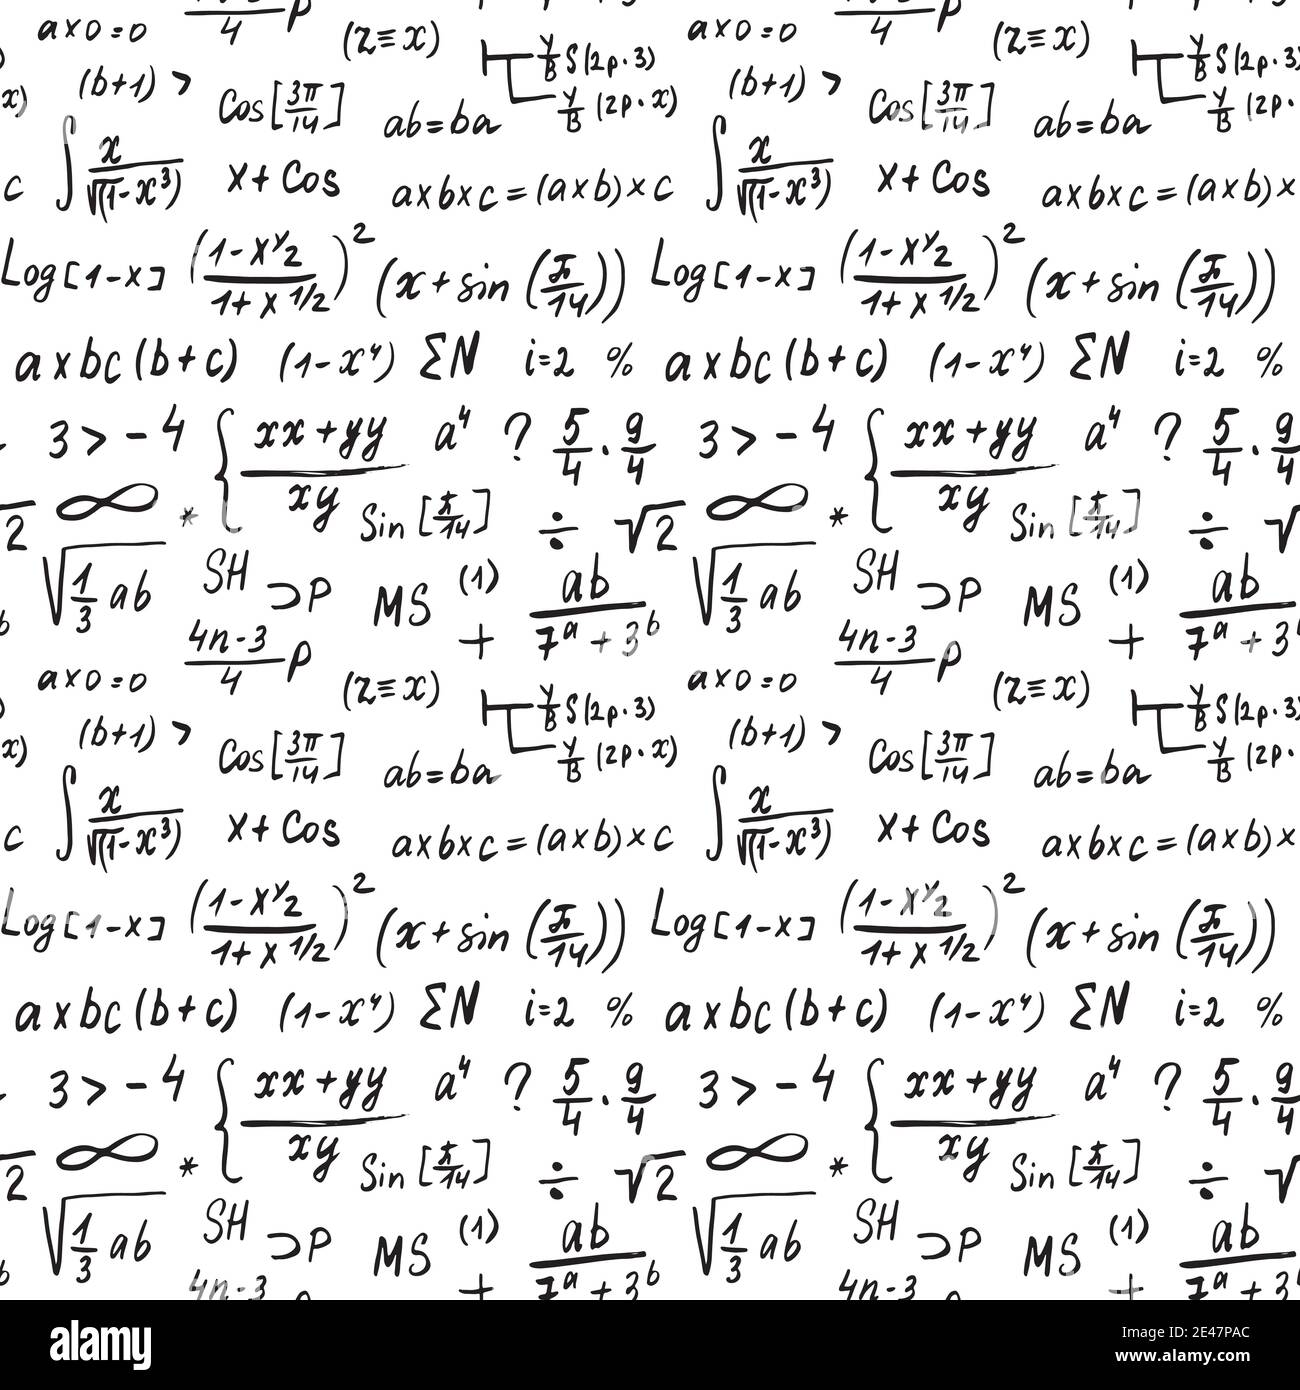 4 p 4 p
a×0=0 (z≡x) a×0=0 (z≡x)
(b+1) > y/B S(2p·3) (b+1) > y/B S(2p·3)
x) Cos[3π/14] ab=ba y/B (2p·x) Cos[3π/14] ab=ba y/B (2p·
c ∫ x/√(1-x³) x+Cos a×b×c=(a×b)×c ∫ x/√(1-x³) x+Cos a×b×c=(a×b)×
Log[1-x] ((1-x^1/2)/(1+x^1/2))² (x+sin(π/14)) Log[1-x] ((1-x^1/2)/(1+x^1/2))² (x+sin(π/14))
a×bc(b+c) (1-x⁴) ΣN i=2 % a×bc(b+c) (1-x⁴) ΣN i=2 %
3>-4 { xx+yy/xy a⁴ ? 5/4·9/4 3>-4 { xx+yy/xy a⁴ ? 5/4·9/4
2 ∞ * Sin[π/14] ÷ √2 ∞ * Sin[π/14] ÷ √
√1/3 ab SH ⊃P MS (1) ab/7ᵃ+3ᵇ √1/3 ab SH ⊃P MS (1) ab/7ᵃ+3ᵇ
4n-3/4 p + 4n-3/4 p +
a×0=0 (z≡x) a×0=0 (z≡x)
(b+1) > y/B S(2p·3) (b+1) > y/B S(2p·3)
x) Cos[3π/14] ab=ba y/B (2p·x) Cos[3π/14] ab=ba y/B (2p·
c ∫ x/√(1-x³) x+Cos a×b×c=(a×b)×c ∫ x/√(1-x³) x+Cos a×b×c=(a×b)×
Log[1-x] ((1-x^1/2)/(1+x^1/2))² (x+sin(π/14)) Log[1-x] ((1-x^1/2)/(1+x^1/2))² (x+sin(π/14))
a×bc(b+c) (1-x⁴) ΣN i=2 % a×bc(b+c) (1-x⁴) ΣN i=2 %
3>-4 { xx+yy/xy a⁴ ? 5/4·9/4 3>-4 { xx+yy/xy a⁴ ? 5/4·9/4
2 ∞ * Sin[π/14] ÷ √2 ∞ * Sin[π/14] ÷ √
√1/3 ab SH ⊃P MS (1) ab/7ᵃ+3ᵇ √1/3 ab SH ⊃P MS (1) ab/7ᵃ+3
4n-3 + 4n-3 +
alamy
Image ID: 2E47PAC
www.alamy.com